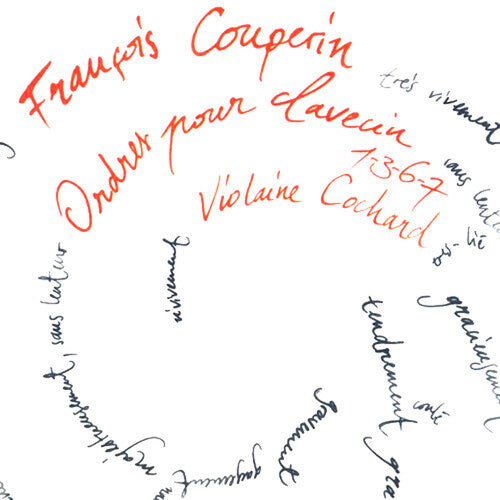 François Couperin
Ordres pour clavecin
1-3-6-7
Violaine Cochard
très vivement
sans lenteur
lié
gracieusement
tendrement
conté
gra
vivement
sans lenteur
vivement
gayement